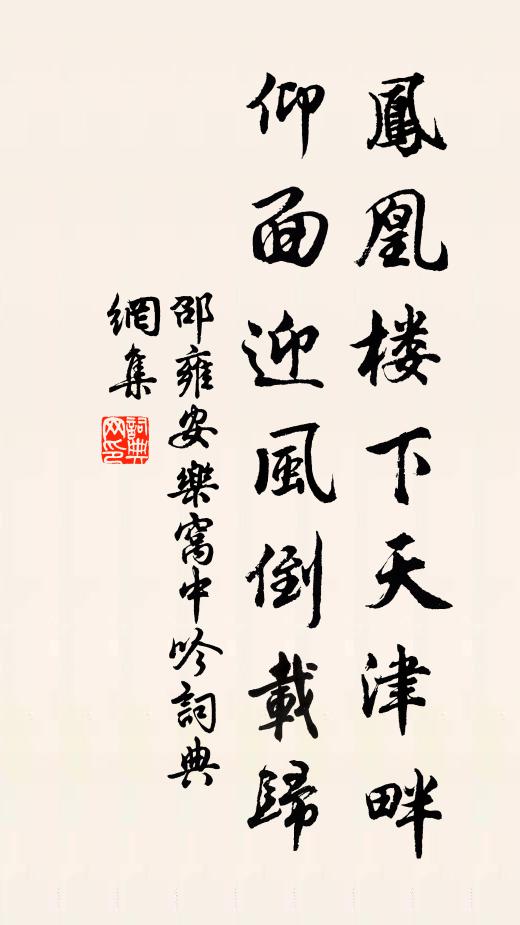 鳳凰楼下天津畔
仰面迎風倒載歸
邵雍安樂窩中吟詞典
網集
詞典
网印